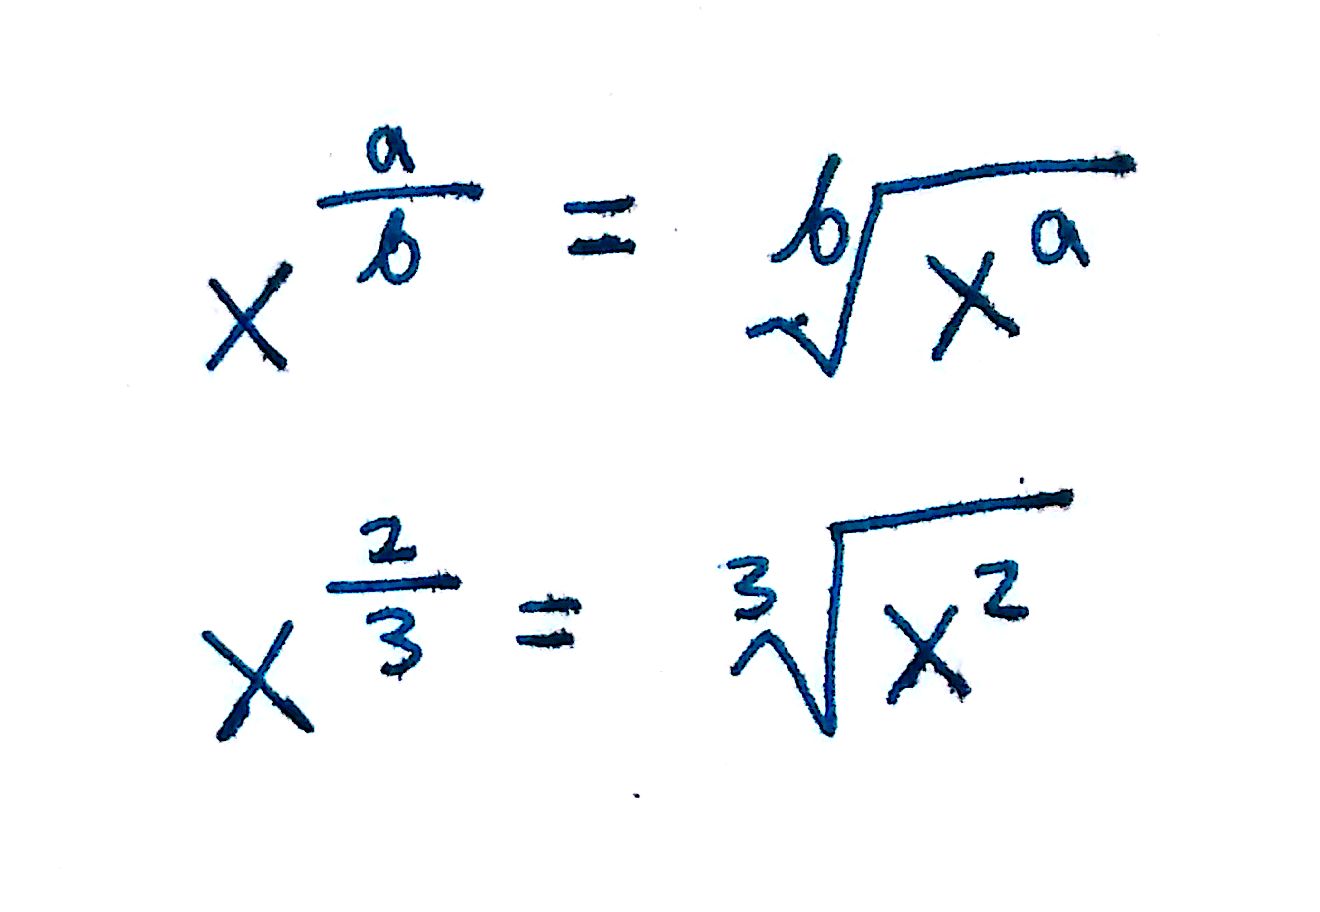 x^{\frac{a}{b}} = \sqrt[b]{x^a}
x^{\frac{2}{3}} = \sqrt[3]{x^2}